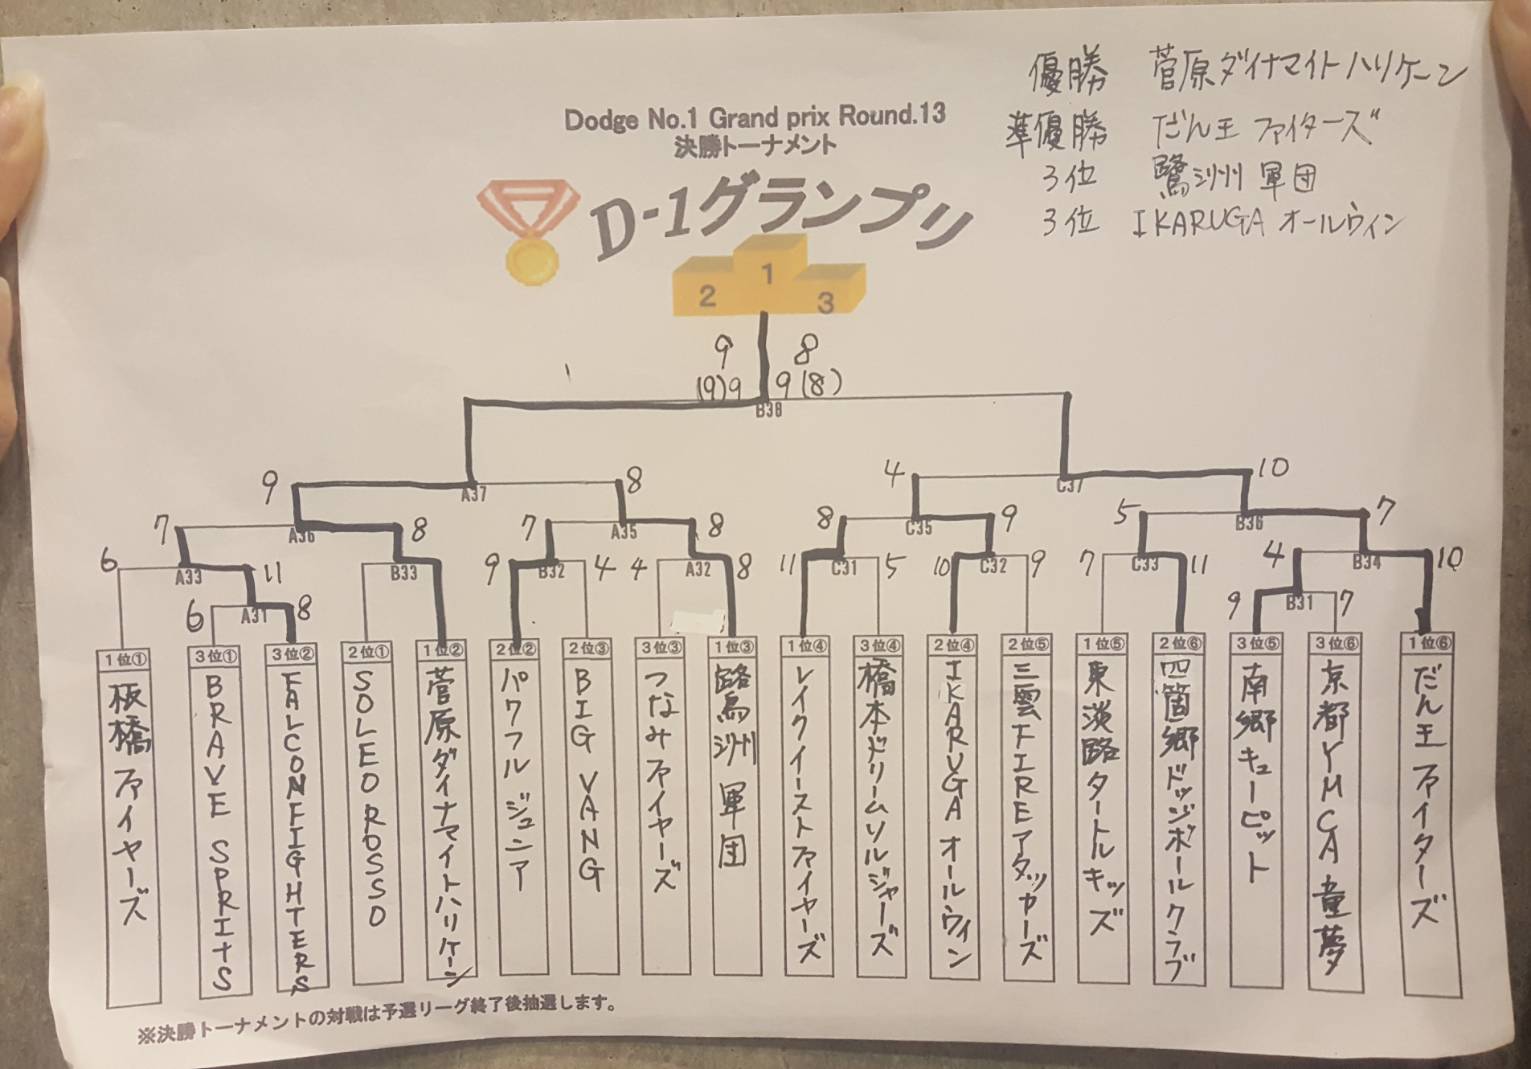 優勝 菅原ダイナマイトハリケーン
準優勝 だん王ファイターズ
3位 鷺洲軍団
3位 IKARUGAオールウィン
Dodge No.1 Grand prix Round.13
決勝トーナメント
D-1グランプリ
1
2
3
9 8
(9)9 9(8)
B38
9 8 4 10
A37 C37
7 8 7 8 8 9 5 7
A36 A35 C35 B36
6 11 9 4 4 8 11 5 10 9 7 11 4 10
A33 B33 B32 A32 C31 C32 C33 B34
6 8 9 7
A31 B31
1位① 3位① 3位② 2位① 1位② 2位② 2位③ 3位③ 1位③ 1位④ 3位④ 2位④ 2位⑤ 1位⑤ 2位⑥ 3位⑤ 3位⑥ 1位⑥
板橋ファイヤーズ
BRAVE SPRITS
FALCONFIGHTERS
SOLEO ROSSO
菅原ダイナマイトハリケーン
パワフルジュニア
BIG VANG
つなみファイヤーズ
鷺洲軍団
レイクイーストファイヤーズ
橋本ドリームソルジャーズ
IKARUGAオールウィン
三雲FIREアタッカーズ
東淡路タートルキッズ
四箇郷ドッジボールクラブ
南郷キューピット
京都YMCA童夢
だん王ファイターズ
※決勝トーナメントの対戦は予選リーグ終了後抽選します。